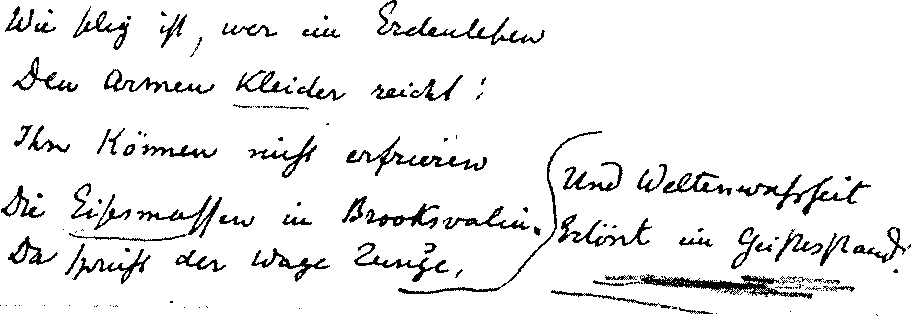 Wie selig ist, wer im Erdenleben
Den Armen Kleider reicht!
Ihn können nicht erfrieren
Die Eisesmassen in Brooksvalin.
Da spricht der Wage Zunge,
Und Weltenwahrheit
Ertönt im Geistesstand.